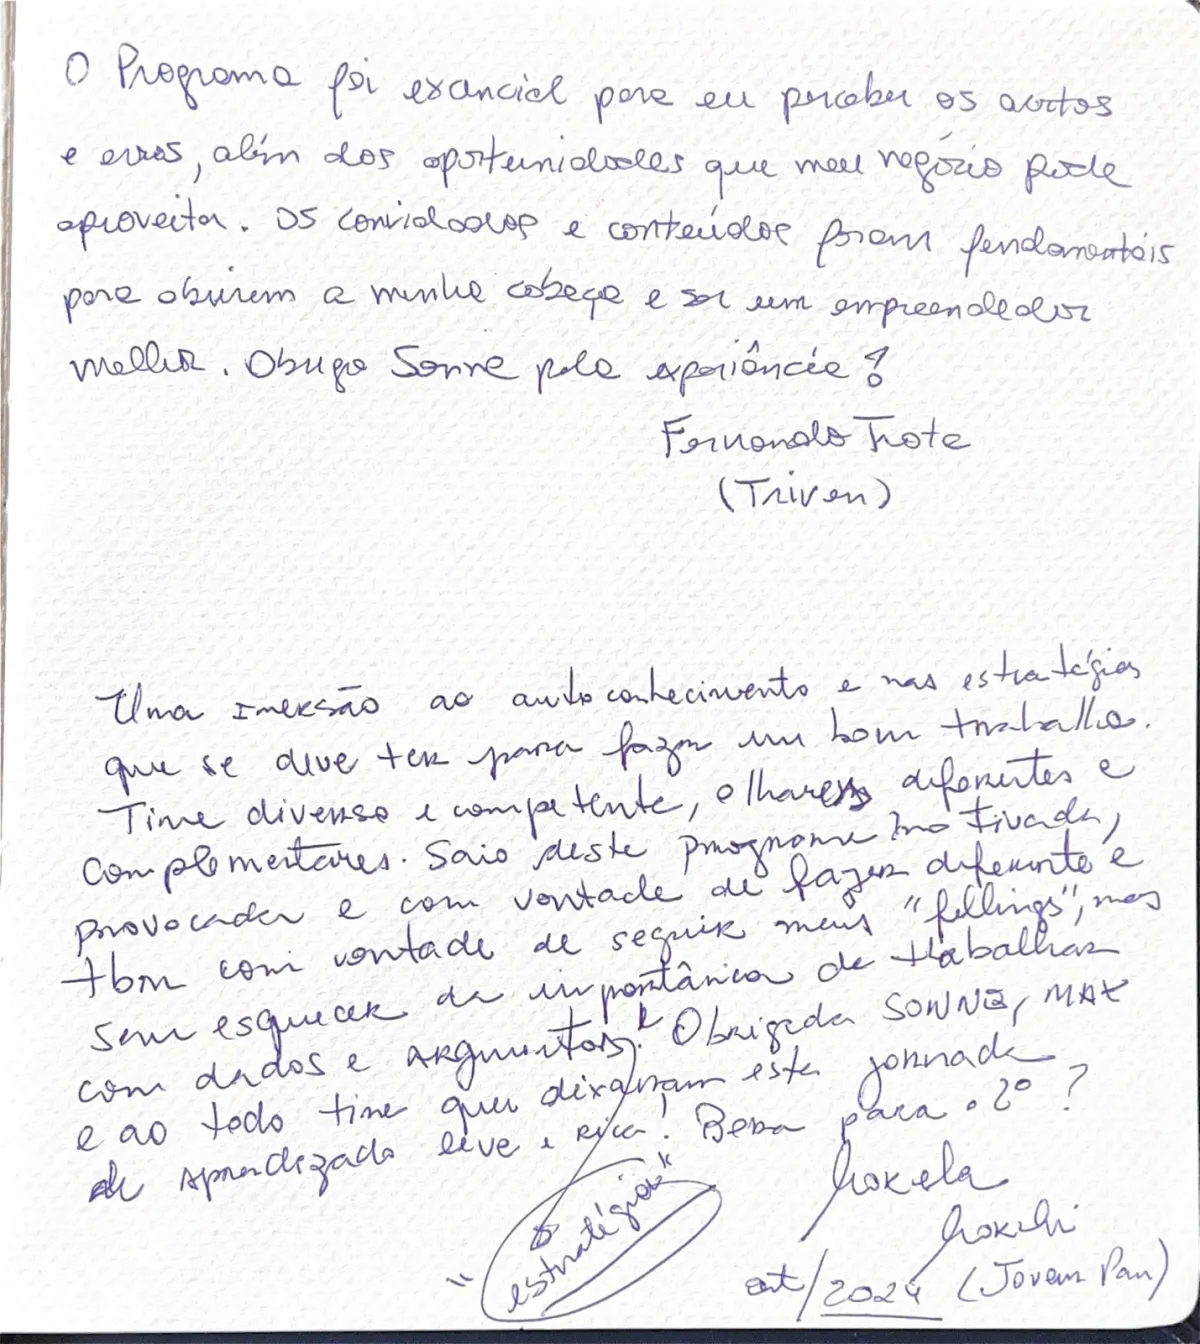 O Programa foi essencial para eu perceber os acertos
e erros, além das oportunidades que meu negócio pode
aproveitar. Os convidados e conteúdos foram fundamentais
para abrirem a minha cabeça e ser um empreendedor
melhor. Obrigado Sonne pela experiência!
Fernando Trota
(Triven)
Uma imersão ao autoconhecimento e nas estratégias
que se deve ter para fazer um bom trabalho.
Time diverso e competente, olhares diferentes e
complementares. Saio deste programa motivada,
provocada e com vontade de fazer diferente e
tbm com vontade de seguir meus "fellings", mas
sem esquecer da importância de trabalhar
com dados e argumentos! Obrigada SONNE, MAX
e ao todo time que deixaram esta jornada
de aprendizado leve e rica! Bora para o 2º?
"estratégia"
out/2024 (Jovem Pan)